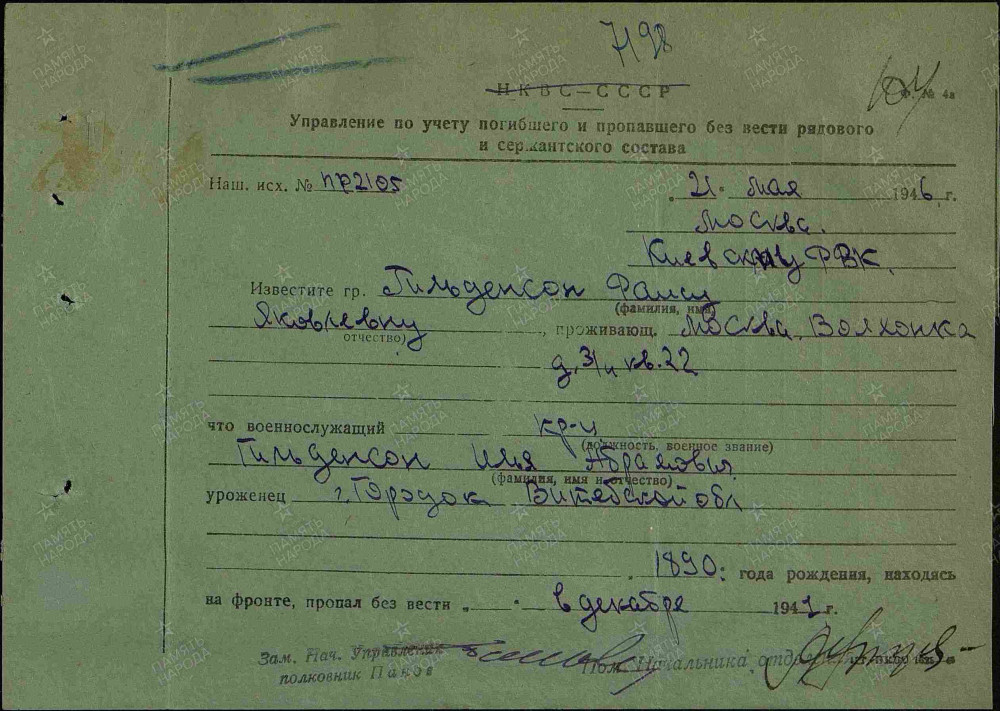 7198
НКВС—СССР
Ф. № 4а
Управление по учету погибшего и пропавшего без вести рядового
и сержантского состава
Наш. исх. № пр2105
„21“ мая 1946 г.
Москва.
Киевскому РВК.
Известите гр. Гильденсон
(фамилия, имя)
Яковлевну, проживающ. Москва, Волхонка
отчество)
д. 3/4 кв. 22
что военнослужащий кр-ц
(должность, военное звание)
Гильденсон Илья Абрамович
(фамилия, имя и отчество)
уроженец г. Городок Витебской обл
1890. года рождения, находясь
на фронте, пропал без вести „ “ в декабре 1941 г.
Зам. Нач. Управления
Пом. Начальника отдела
полковник Панов
ПАМЯТЬ НАРОДА